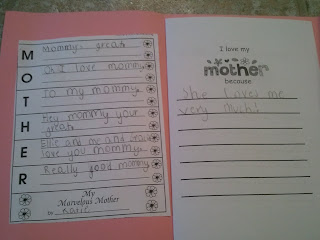 M Mommy great
O Oh I love mommy
T To my mommy
H Hey mommy your
great
E Ellie and me and
love you mommy
R Really good mommy
My
Marvelous Mother
by
I love my
mother
because
She loves me
very much!